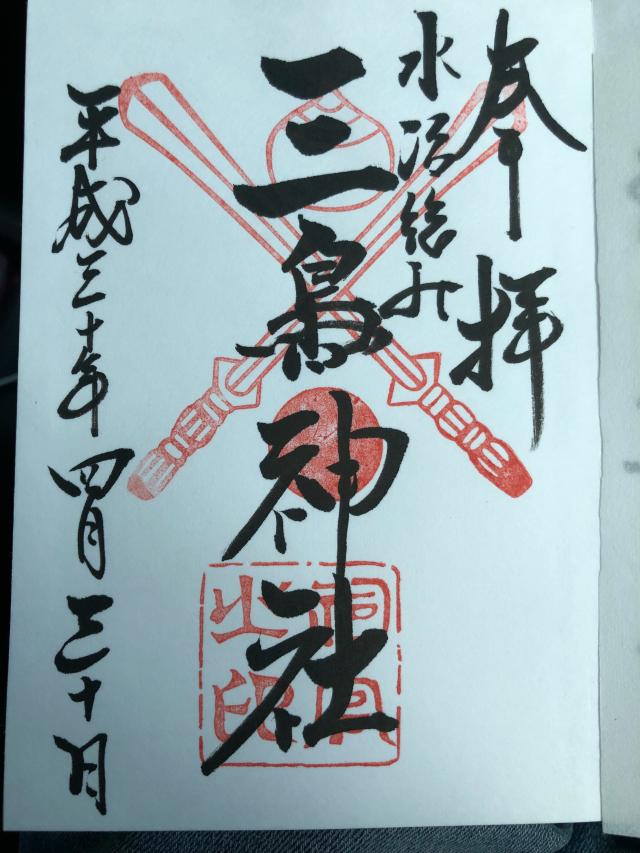 奉拝
水沼総社
三島神社
平成三十年四月三十日
祠司之印